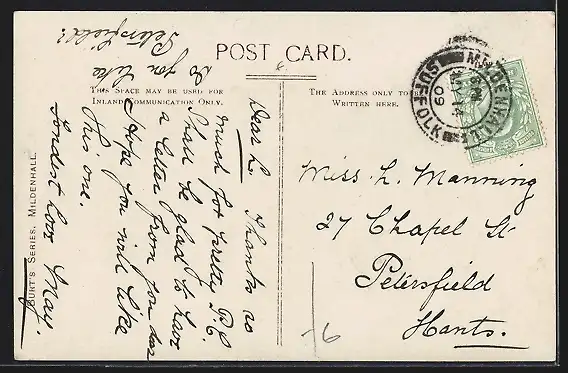 POST CARD.
THIS SPACE MAY BE USED FOR
INLAND COMMUNICATION ONLY.
THE ADDRESS ONLY TO BE
WRITTEN HERE.
MILDENHALL
SUFFOLK
09
Dear L. Thanks so
much for pretty P.C.
Shall be glad to have
a letter from you
Hope you will like
this one.
Fondest love May.
Do you like
Petersfield?
Miss L. Manning
27 Chapel St
Petersfield
Hants.
BURT'S SERIES, MILDENHALL.